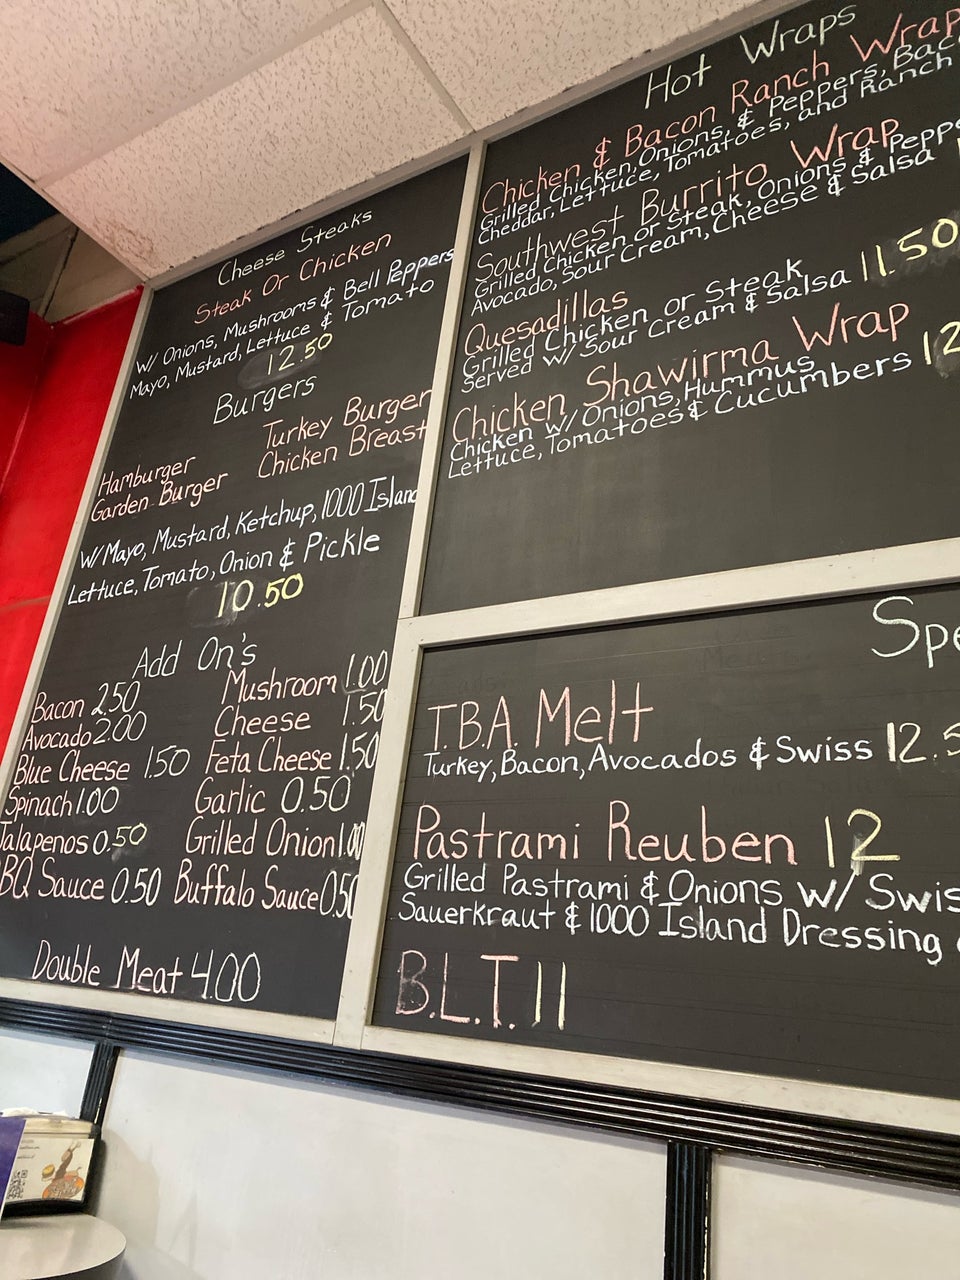 Cheese Steaks
Steak Or Chicken
W/ Onions, Mushrooms & Bell Peppers
Mayo, Mustard, Lettuce & Tomato
12.50
Burgers
Hamburger Turkey Burger
Garden Burger Chicken Breast
W/ Mayo, Mustard, Ketchup, 1000 Island
Lettuce, Tomato, Onion & Pickle
10.50
Add On's
Bacon 2.50 Mushroom 1.00
Avocado 2.00 Cheese 1.50
Blue Cheese 1.50 Feta Cheese 1.50
Spinach 1.00 Garlic 0.50
Jalapenos 0.50 Grilled Onion 1.00
BQ Sauce 0.50 Buffalo Sauce 0.50
Double Meat 4.00
Hot Wraps
Chicken & Bacon Ranch Wrap
Grilled Chicken, Onions, & Peppers, Bac
Cheddar, Lettuce, Tomatoes, and Ranch
Southwest Burrito Wrap
Grilled Chicken or Steak, Onions & Peppe
Avocado, Sour Cream, Cheese & Salsa
Quesadillas
Grilled Chicken or Steak
Served w/ Sour Cream & Salsa 11.50
Chicken Shawirma Wrap
Chicken w/ Onions, Hummus
Lettuce, Tomatoes & Cucumbers 12
Spe
T.B.A. Melt
Turkey, Bacon, Avocados & Swiss 12.5
Pastrami Reuben 12
Grilled Pastrami & Onions w/ Swis
Sauerkraut & 1000 Island Dressing
B.L.T. 11